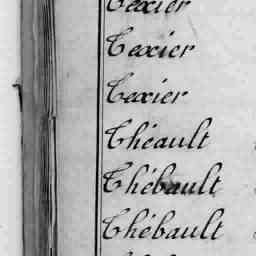 Texier
Texier
Texier
Théault
Thébault
Thébault